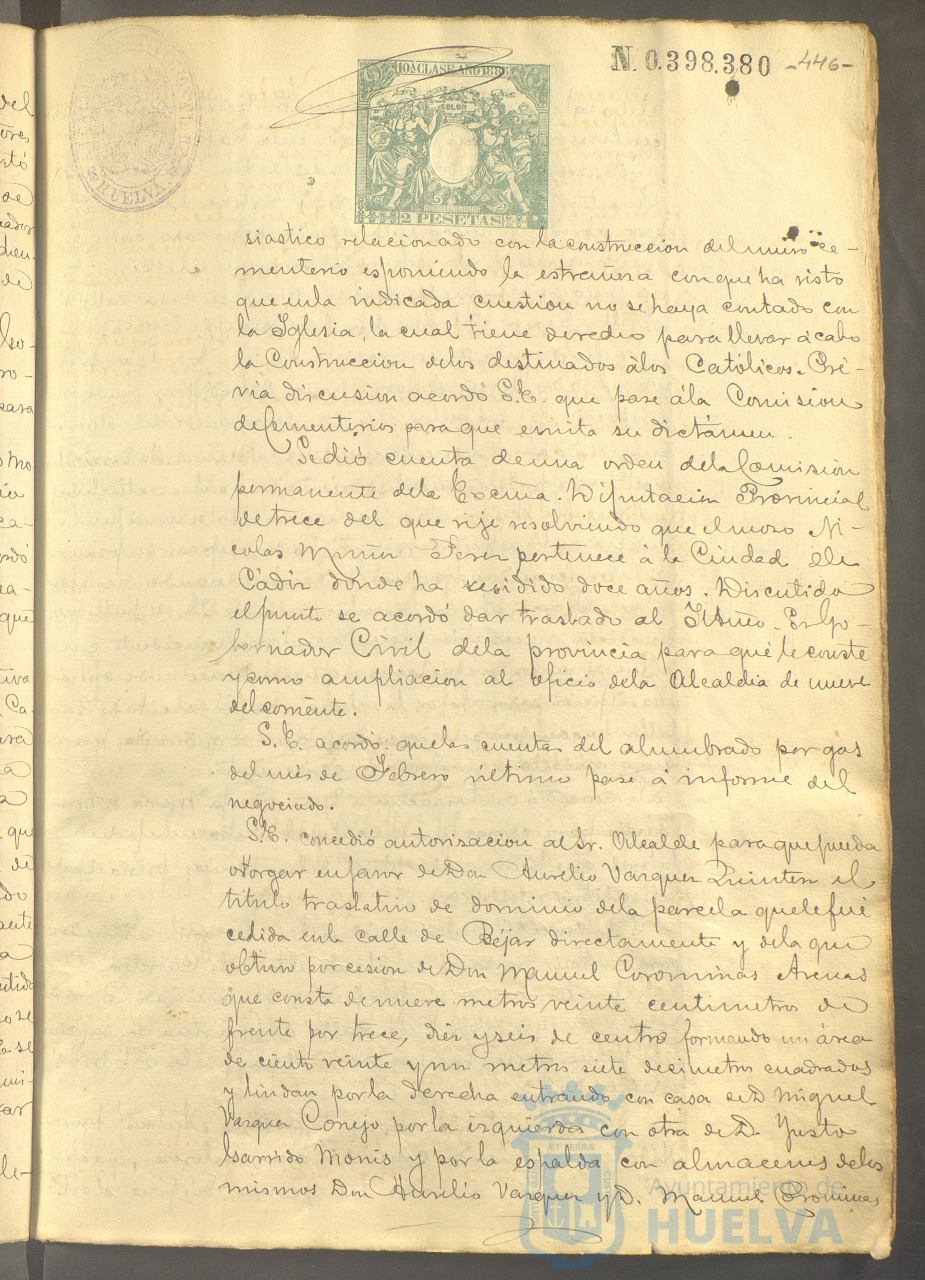 N. 0.398.380 -446-
10A CLASE. AÑO 1896
COLON
2 PESETAS
HUELVA
siastico relacionado con la construccion del nuevo ce-
menterio esponiendo la estrañesa con que ha visto
que en la indicada cuestion no se haya contado con
la Iglesia, la cual tiene derecho para llevar á cabo
la Construccion de los destinados á los Católicos. Pré-
via discusion acordó S.E. que pase á la Comision
de Cementerios para que emita su dictámen.
Se dió cuenta de una orden de la Comisión
permanente de la Excma. Diputación Provincial
de trece del que rije resolviendo que el moso Ni-
colas Muñoz Perez pertenece á la Ciudad de
Cádiz donde ha residido doce años. Discutido
el punto se acordó dar traslado al Iltmo. Sr. Go-
bernador Civil de la provincia para que le conste
y como ampliacion al oficio de la Alcaldia de nueve
del corriente.
S.E. acordó: que las cuentas del alumbrado por gas
del més de Febrero último pase á informe del
negociado.
S.E. concedió autorizacion al Sr. Alcalde para que pueda
otorgar en favor de Don Aurelio Vazquez Quintero el
titulo traslativo de dominio de la parcela que le fué
cedida en la calle de Béjar directamente y de la que
obtuvo por cesion de Don Manuel Corominas Arenas
que consta de nueve metros veinte centimetros de
frente por trece, diez y seis de centro formando un área
de ciento veinte y un metros siete decimetros cuadrados
y lindan por la derecha entrando con casa de D Miguel
Vazquez Conejo, por la izquierda con otra de D. Justo
Garrido Monis y por la espalda con almacenes de los
mismos Don Aurelio Vazquez y D. Manuel Corominas
Ayuntamiento de
HUELVA